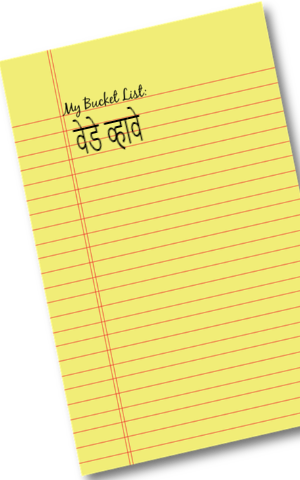 My Bucket List:
वेडे व्हावे